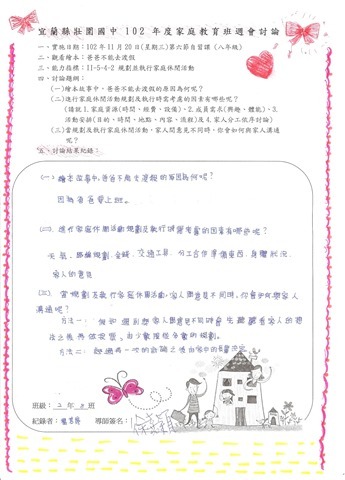 宜蘭縣壯圍國中 102 年度家庭教育班週會討論
一、實施日期：102 年 11 月 20 日(星期三)第六節自習課（八年級）
二、觀看繪本：爸爸不能去渡假
三、能力指標：II-5-4-2 規劃並執行家庭休閒活動
四、討論題綱：
(一)繪本故事中，爸爸不能去渡假的原因為何呢？
(二)進行家庭休閒活動規劃及執行時需考慮的因素有哪些呢？
(請就 1.家庭資源(時間、經費、設備)、2.成員需求(興趣、體能)、3.
活動安排(目的、時間、地點、內容、流程)及 4.家人分工依序討論)
(三)當規劃及執行家庭休閒活動，家人間意見不同時，你會如何與家人溝通
呢？
五、討論結果紀錄：
(一)繪本故事中,爸爸不能去渡假的原因為何呢?
因為爸爸要上班。
(二)進行家庭休閒活動規劃及執行時需考慮的因素有哪些呢?
天氣、路線規劃、金錢、交通工具、分工合作準備東西、身體狀況、
家人的意見
(三)當規劃及執行家庭休閒活動,家人間意見不同時,你會如何與家人
溝通呢?
方法一:
方法二:
班級： 年 班
紀錄者： 導師簽名：